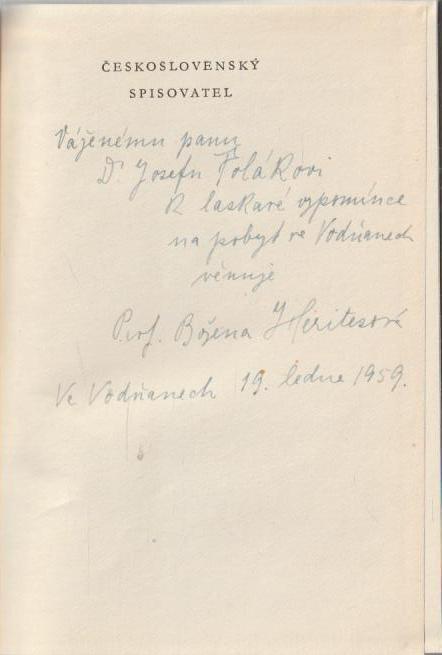 ČESKOSLOVENSKÝ
SPISOVATEL
Váženému panu
Dr Josefu Polákovi
k laskavé vzpomínce
na pobyt ve Vodňanech
věnuje
Prof. Božena Heritesová
Ve Vodňanech 19. ledna 1959.